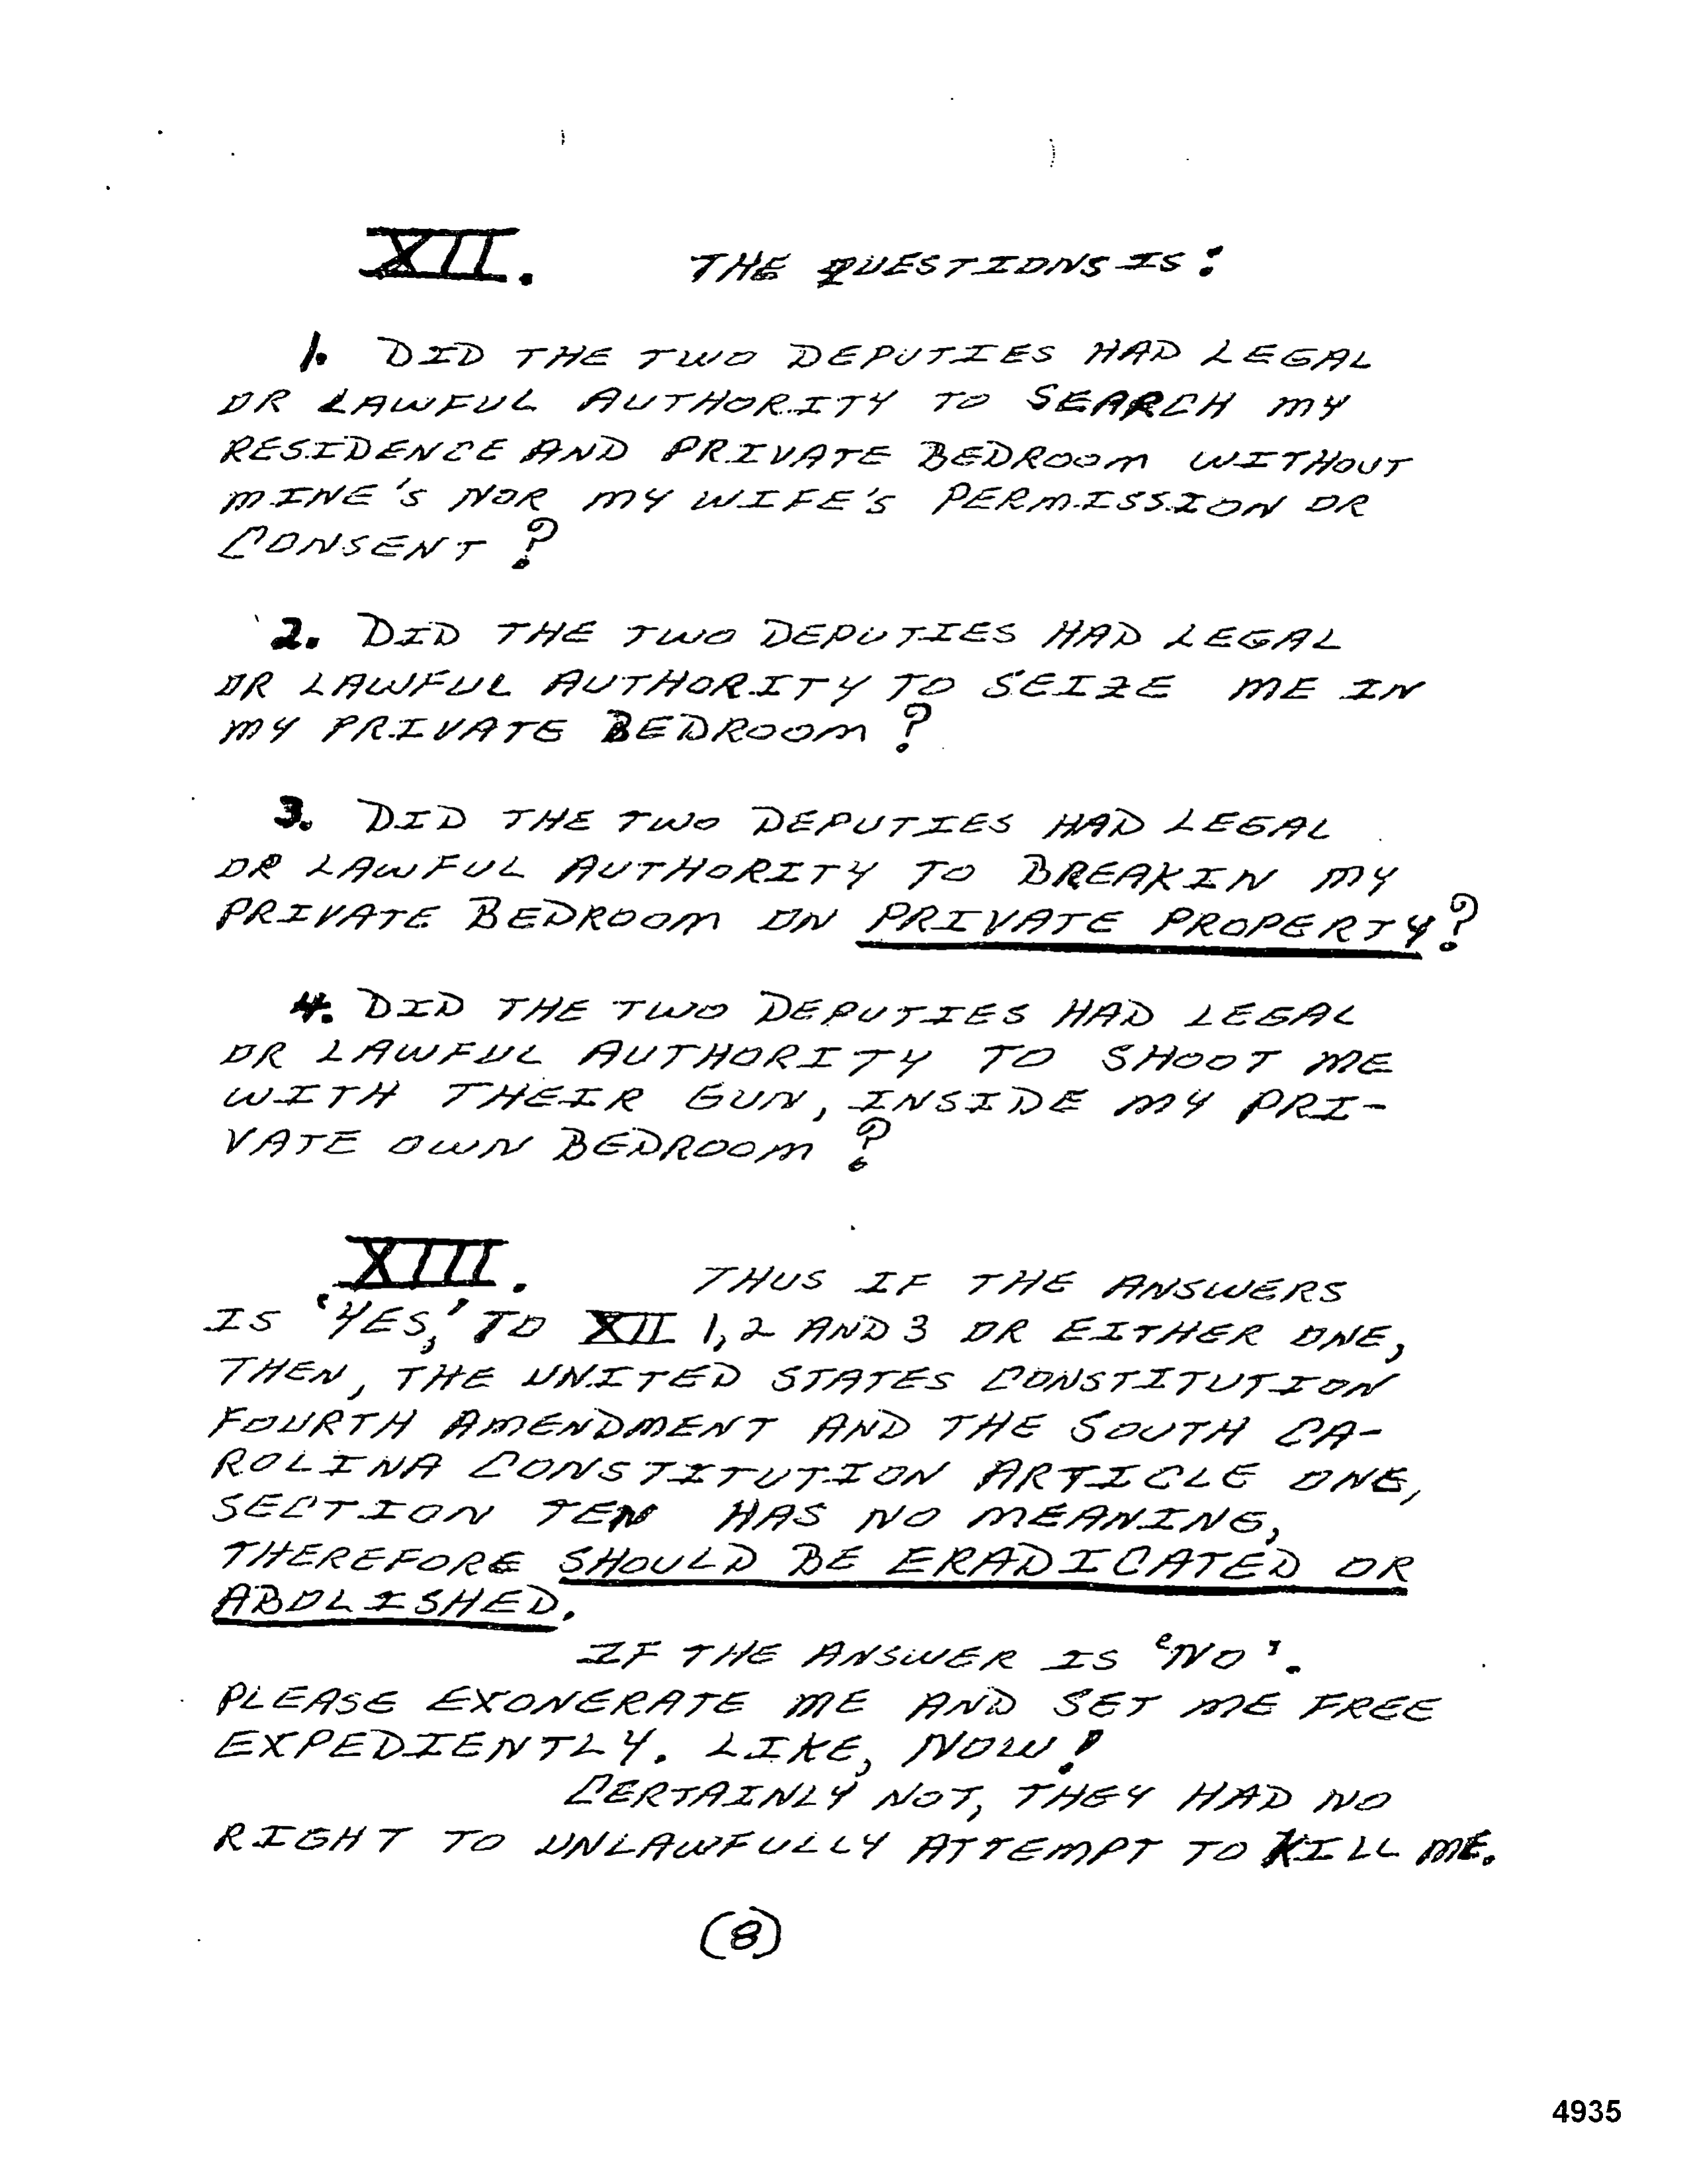 XII. THE QUESTIONS IS:
1. DID THE TWO DEPUTIES HAD LEGAL
OR LAWFUL AUTHORITY TO SEARCH MY
RESIDENCE AND PRIVATE BEDROOM WITHOUT
MINE'S NOR MY WIFE'S PERMISSION OR
CONSENT?
2. DID THE TWO DEPUTIES HAD LEGAL
OR LAWFUL AUTHORITY TO SEIZE ME IN
MY PRIVATE BEDROOM?
3. DID THE TWO DEPUTIES HAD LEGAL
OR LAWFUL AUTHORITY TO BREAKIN MY
PRIVATE BEDROOM ON PRIVATE PROPERTY?
4. DID THE TWO DEPUTIES HAD LEGAL
OR LAWFUL AUTHORITY TO SHOOT ME
WITH THEIR GUN, INSIDE MY PRI-
VATE OWN BEDROOM?
XIII. THUS IF THE ANSWERS
IS 'YES,' TO XII 1, 2 AND 3 OR EITHER ONE,
THEN, THE UNITED STATES CONSTITUTION
FOURTH AMENDMENT AND THE SOUTH CA-
ROLINA CONSTITUTION ARTICLE ONE,
SECTION TEN HAS NO MEANING,
THEREFORE SHOULD BE ERADICATED OR
ABOLISHED.
IF THE ANSWER IS 'NO'.
PLEASE EXONERATE ME AND SET ME FREE
EXPEDIENTLY. LIKE, NOW!
CERTAINLY NOT, THEY HAD NO
RIGHT TO UNLAWFULLY ATTEMPT TO KILL ME.
(8)
4935